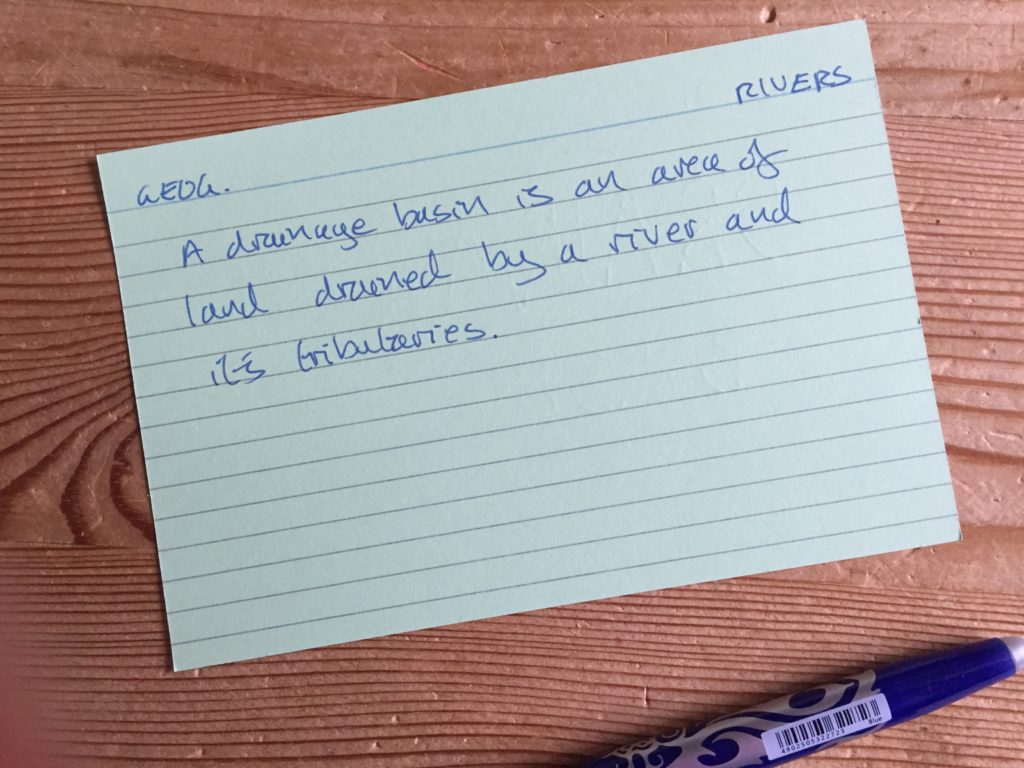 RIVERS
GEOG.
A drainage basin is an area of
land drained by a river and
its tributaries.
4902505322723
Blue